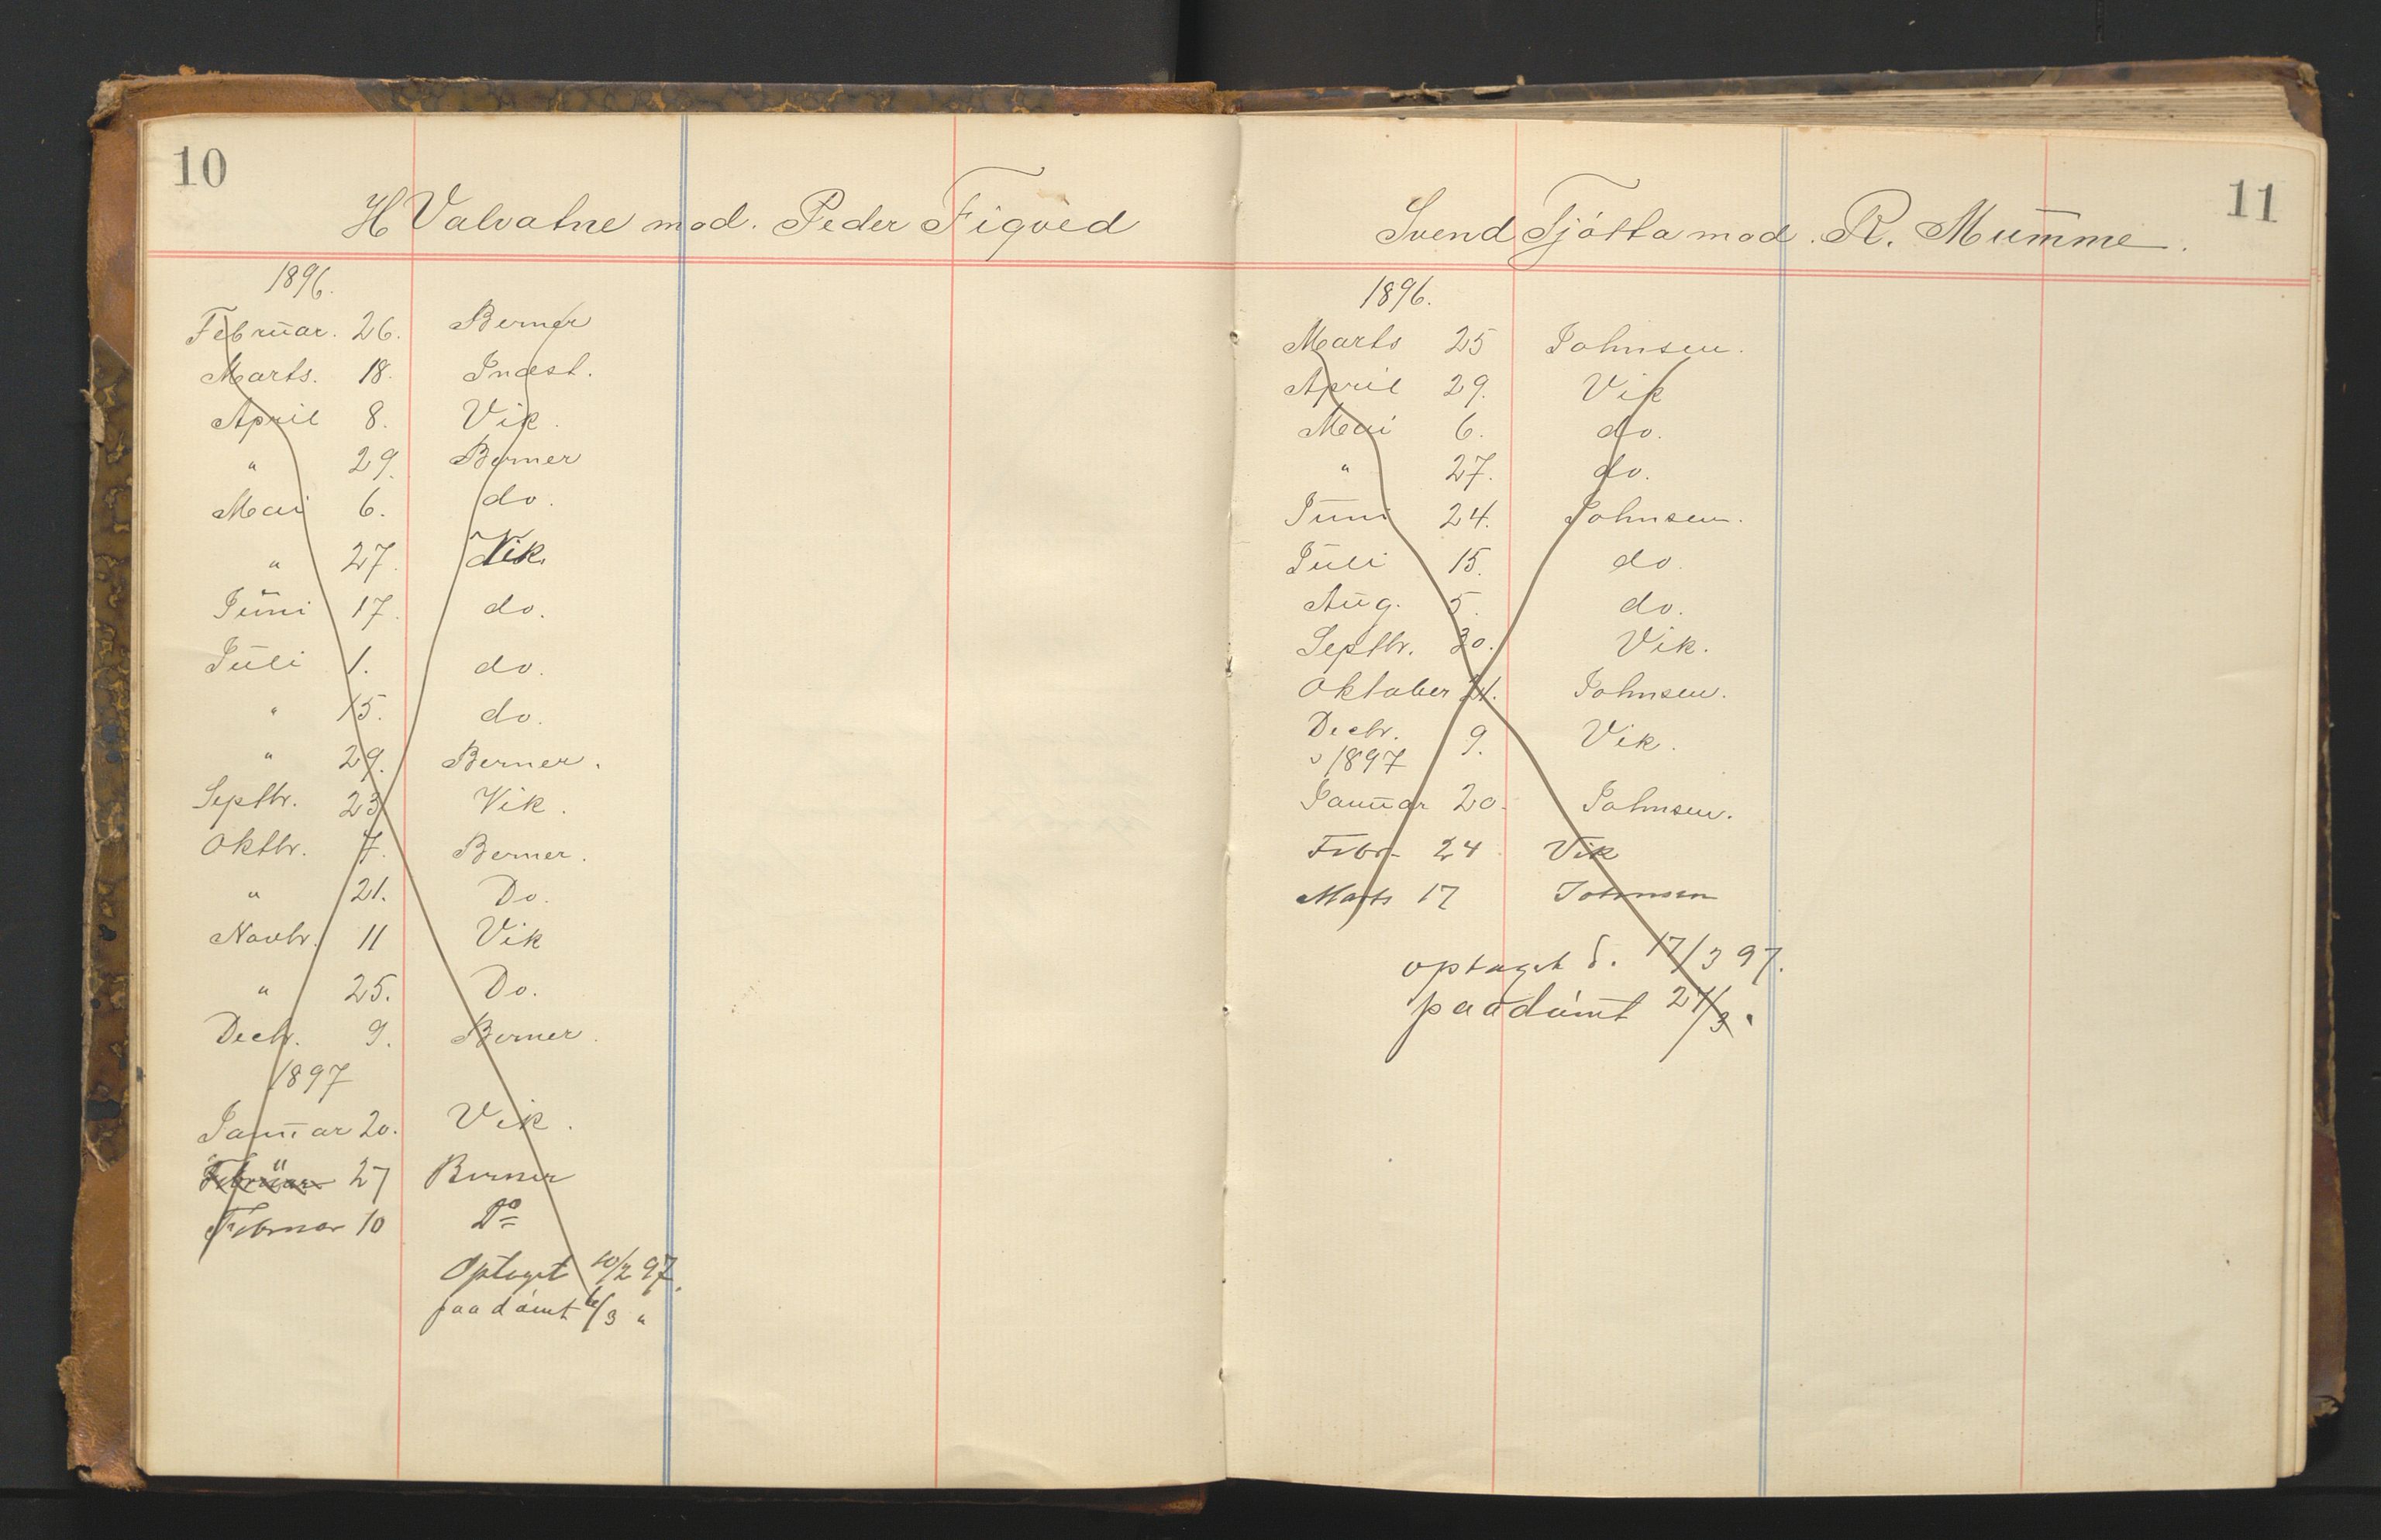 10
H Valvatne mod. Peder Figved
1896.
Februar. 26. Berner
Marts. 18. Indest.
April 8. Vik.
" 29. Berner
Mai 6. do.
" 27. Vik.
Juni 17. do.
Juli 1. do.
" 15. do.
" 29. Berner.
Septbr. 23 Vik.
Oktbr. 7. Berner.
" 21. Do.
Novbr. 11 Vik
" 25. Do.
Decbr. 9. Berner.
1897
Januar 20. Vik.
Februar 27 Berner
Februar 10 Do
Optaget 10/2 97.
paadömt /3 "
11
Svend Tjótta mod. R. Mumme.
1896.
Marts 25 Johnsen.
April 29. Vik
Mai 6. do.
" 27. do.
Juni 24. Johnsen.
Juli 15. do.
Aug. 5. do.
Septbr. 30. Vik.
Oktober 21. Johnsen.
Decbr. 9. Vik.
1897
Januar 20. Johnsen.
Febr. 24 Vik
Marts 17 Johnsen
optaget d. 17/3 97.
paadömt 24/3 "